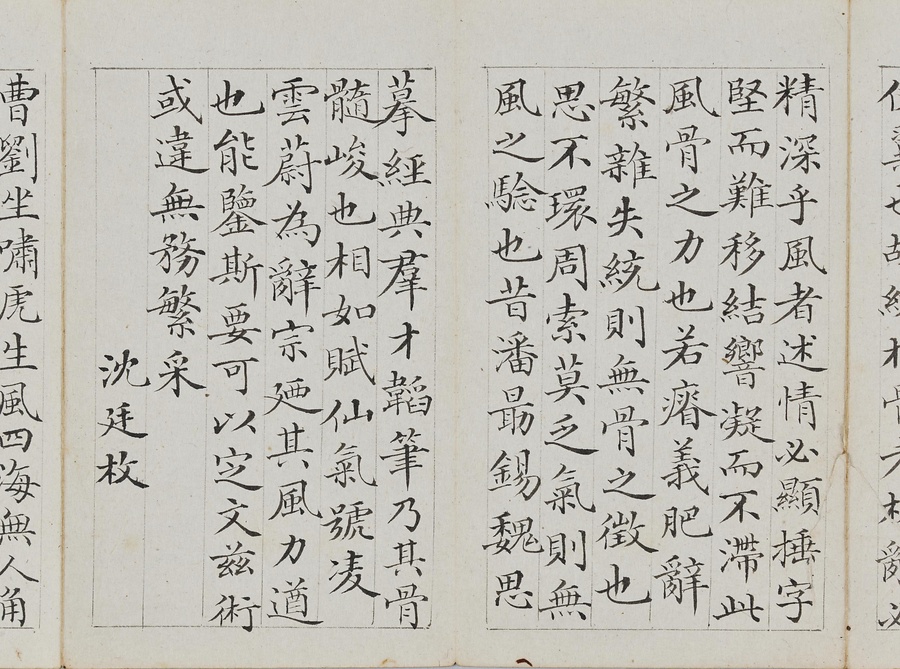 精深乎風者述情必顯捶字
堅而難移結響凝而不滯此
風骨之力也若瘠義肥辭
繁雜失統則無骨之徵也
思不環周索莫乏氣則無
風之騐也昔潘勗錫魏思
摹經典羣才韜筆乃其骨
髓峻也相如賦仙氣號凌
雲蔚為辭宗廼其風力遒
也能鑒斯要可以定文兹術
或違無務繁采
沈廷枚
曹劉坐嘯虎生風四海無人角